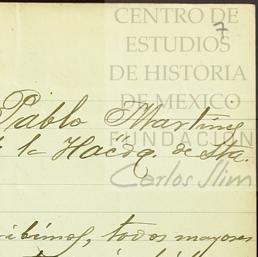 CENTRO DE
ESTUDIOS
DE HISTORIA
DE MEXICO
FUNDACIÓN
Carlos Slim
7
Pablo Martinez
la Hacda. de Sta.
ibimos, todos mayores